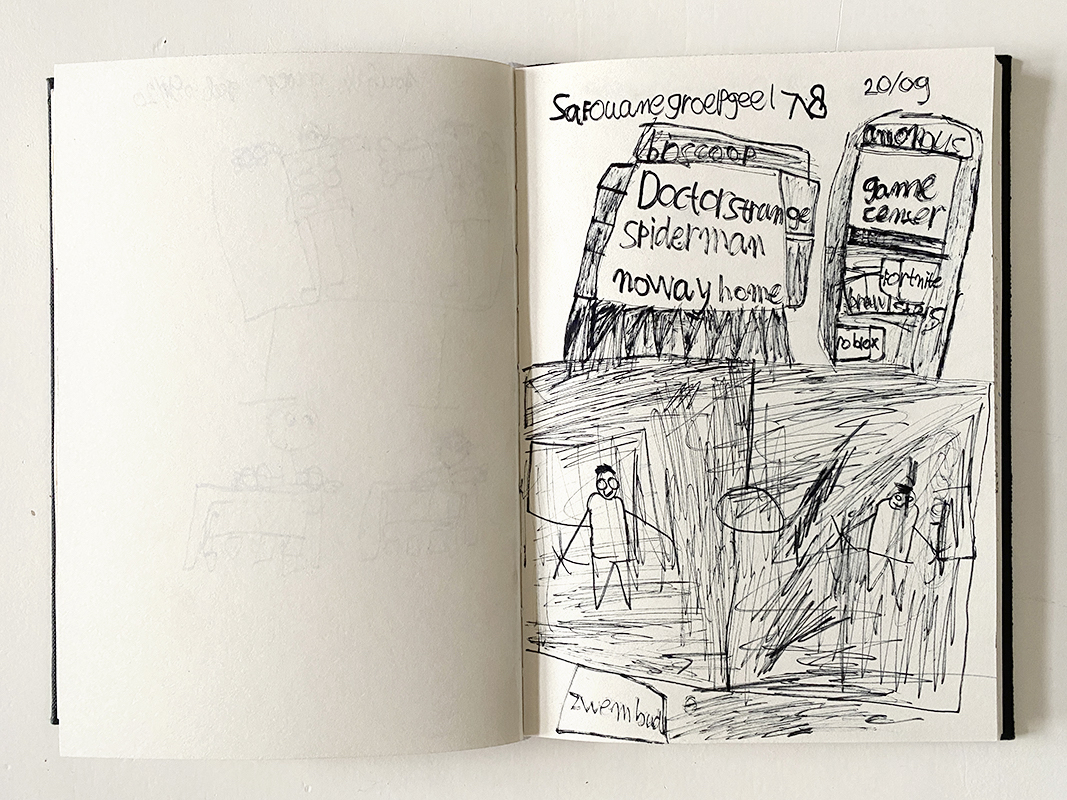 Safouane groepgeel 7/8
20/09
bioscoop
Doctor strange
spiderman
noway home
amonus
game
center
fortnite
brawlstars
roblox
zwembad